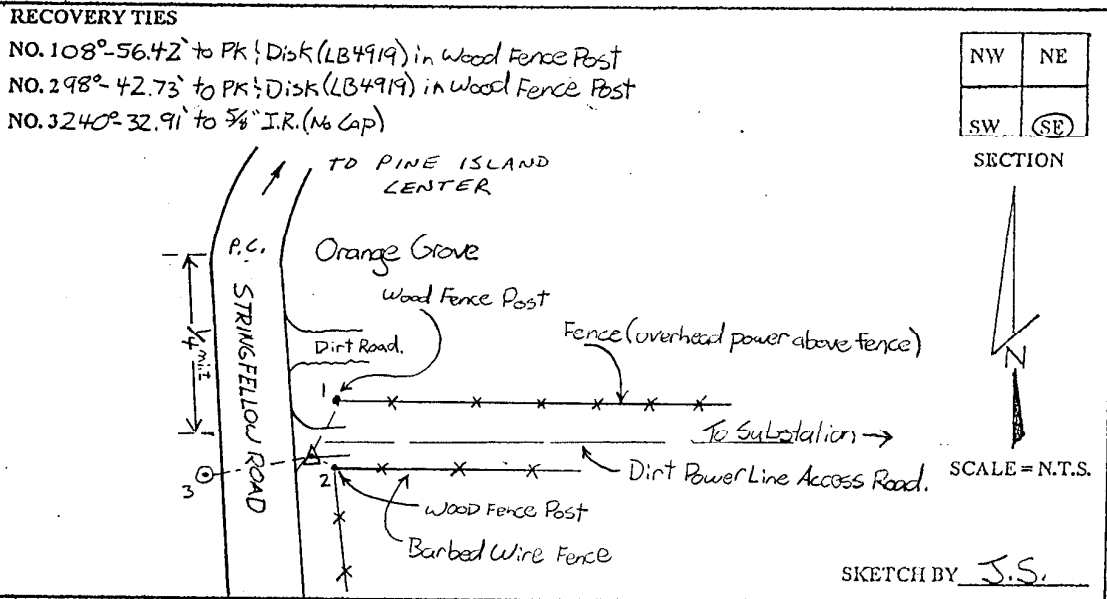 RECOVERY TIES
NO. 1 08°-56.42' to PK & Disk (LB4919) in Wood Fence Post
NO. 2 98°-42.73' to PK & Disk (LB4919) in Wood Fence Post
NO. 3 240°-32.91' to 5/8" I.R. (No Cap)
NW NE
SW SE
SECTION
TO PINE ISLAND
CENTER
P.C.
Orange Grove
Wood Fence Post
STRINGFELLOW ROAD
Dirt Road.
Fence (overhead power above fence)
1/4 mi±
1
N
To Substation →
3
2
Dirt Power Line Access Road.
SCALE = N.T.S.
WOOD Fence Post
Barbed Wire Fence
SKETCH BY J.S.